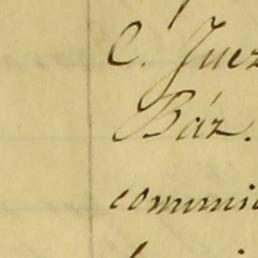 C. Juez
Báz.
comuni